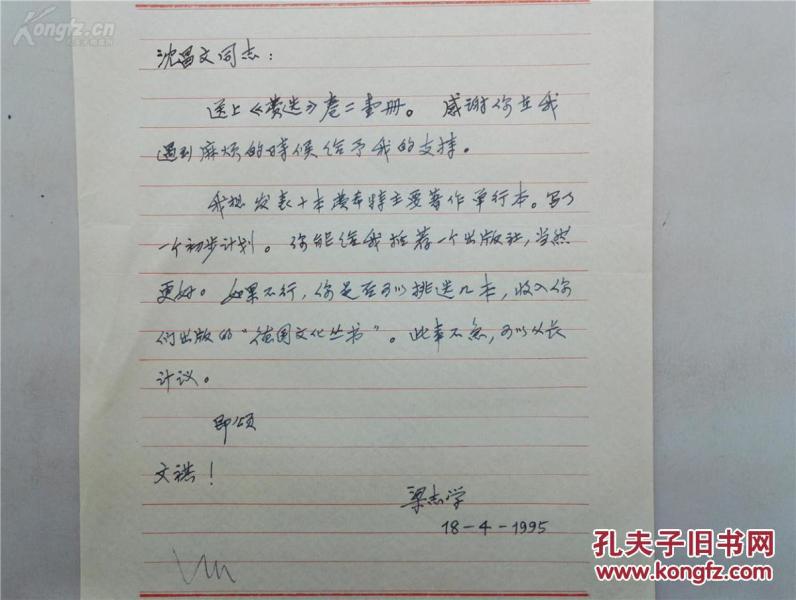 Kongfz.cn
沈昌文同志：
送上《费选》卷二壹册。感谢你在我
遇到麻烦的时候给予我的支持。
我想发表十本费希特主要著作单行本。写了
一个初步计划。你能给我推荐一个出版社，当然
更好。如果不行，你是否可以挑选几本，收入你
们出版的“德国文化丛书”。此事不急，可以从长
计议。
即颂
文祺！
梁志学
18-4-1995
孔夫子旧书网
www.kongfz.com